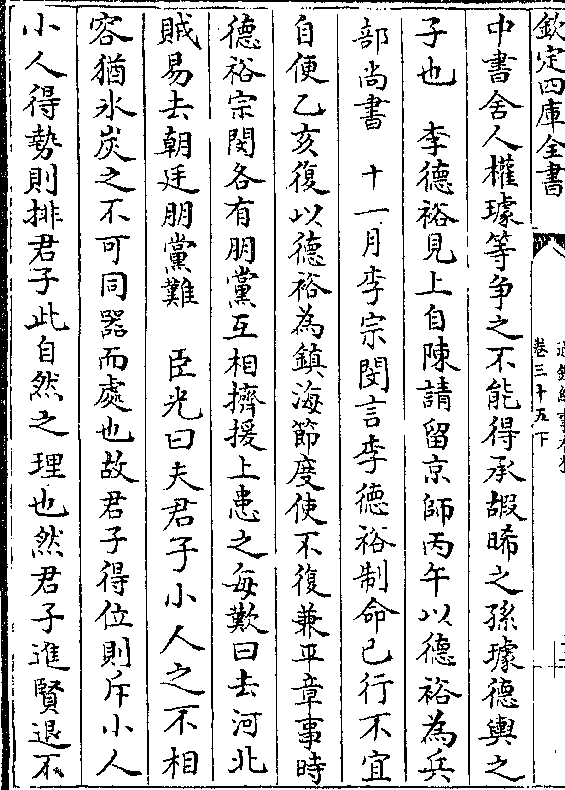 欽定四庫全書
卷三十五下
中書舍人權璩等争之不能得承嘏晞之孫璩德輿之
子也　李德裕見上自陳請留京師丙午以德裕為兵
部尚書　十一月李宗閔言李德裕制命已行不宜
自便乙亥復以德裕為鎮海節度使不復兼平章事時
德裕宗閔各有朋黨互相擠援上患之每歎曰去河北
賊易去朝廷朋黨難　臣光曰夫君子小人之不相
容猶氷炭之不可同器而處也故君子得位則斥小人
小人得勢則排君子此自然之理也然君子進賢退不